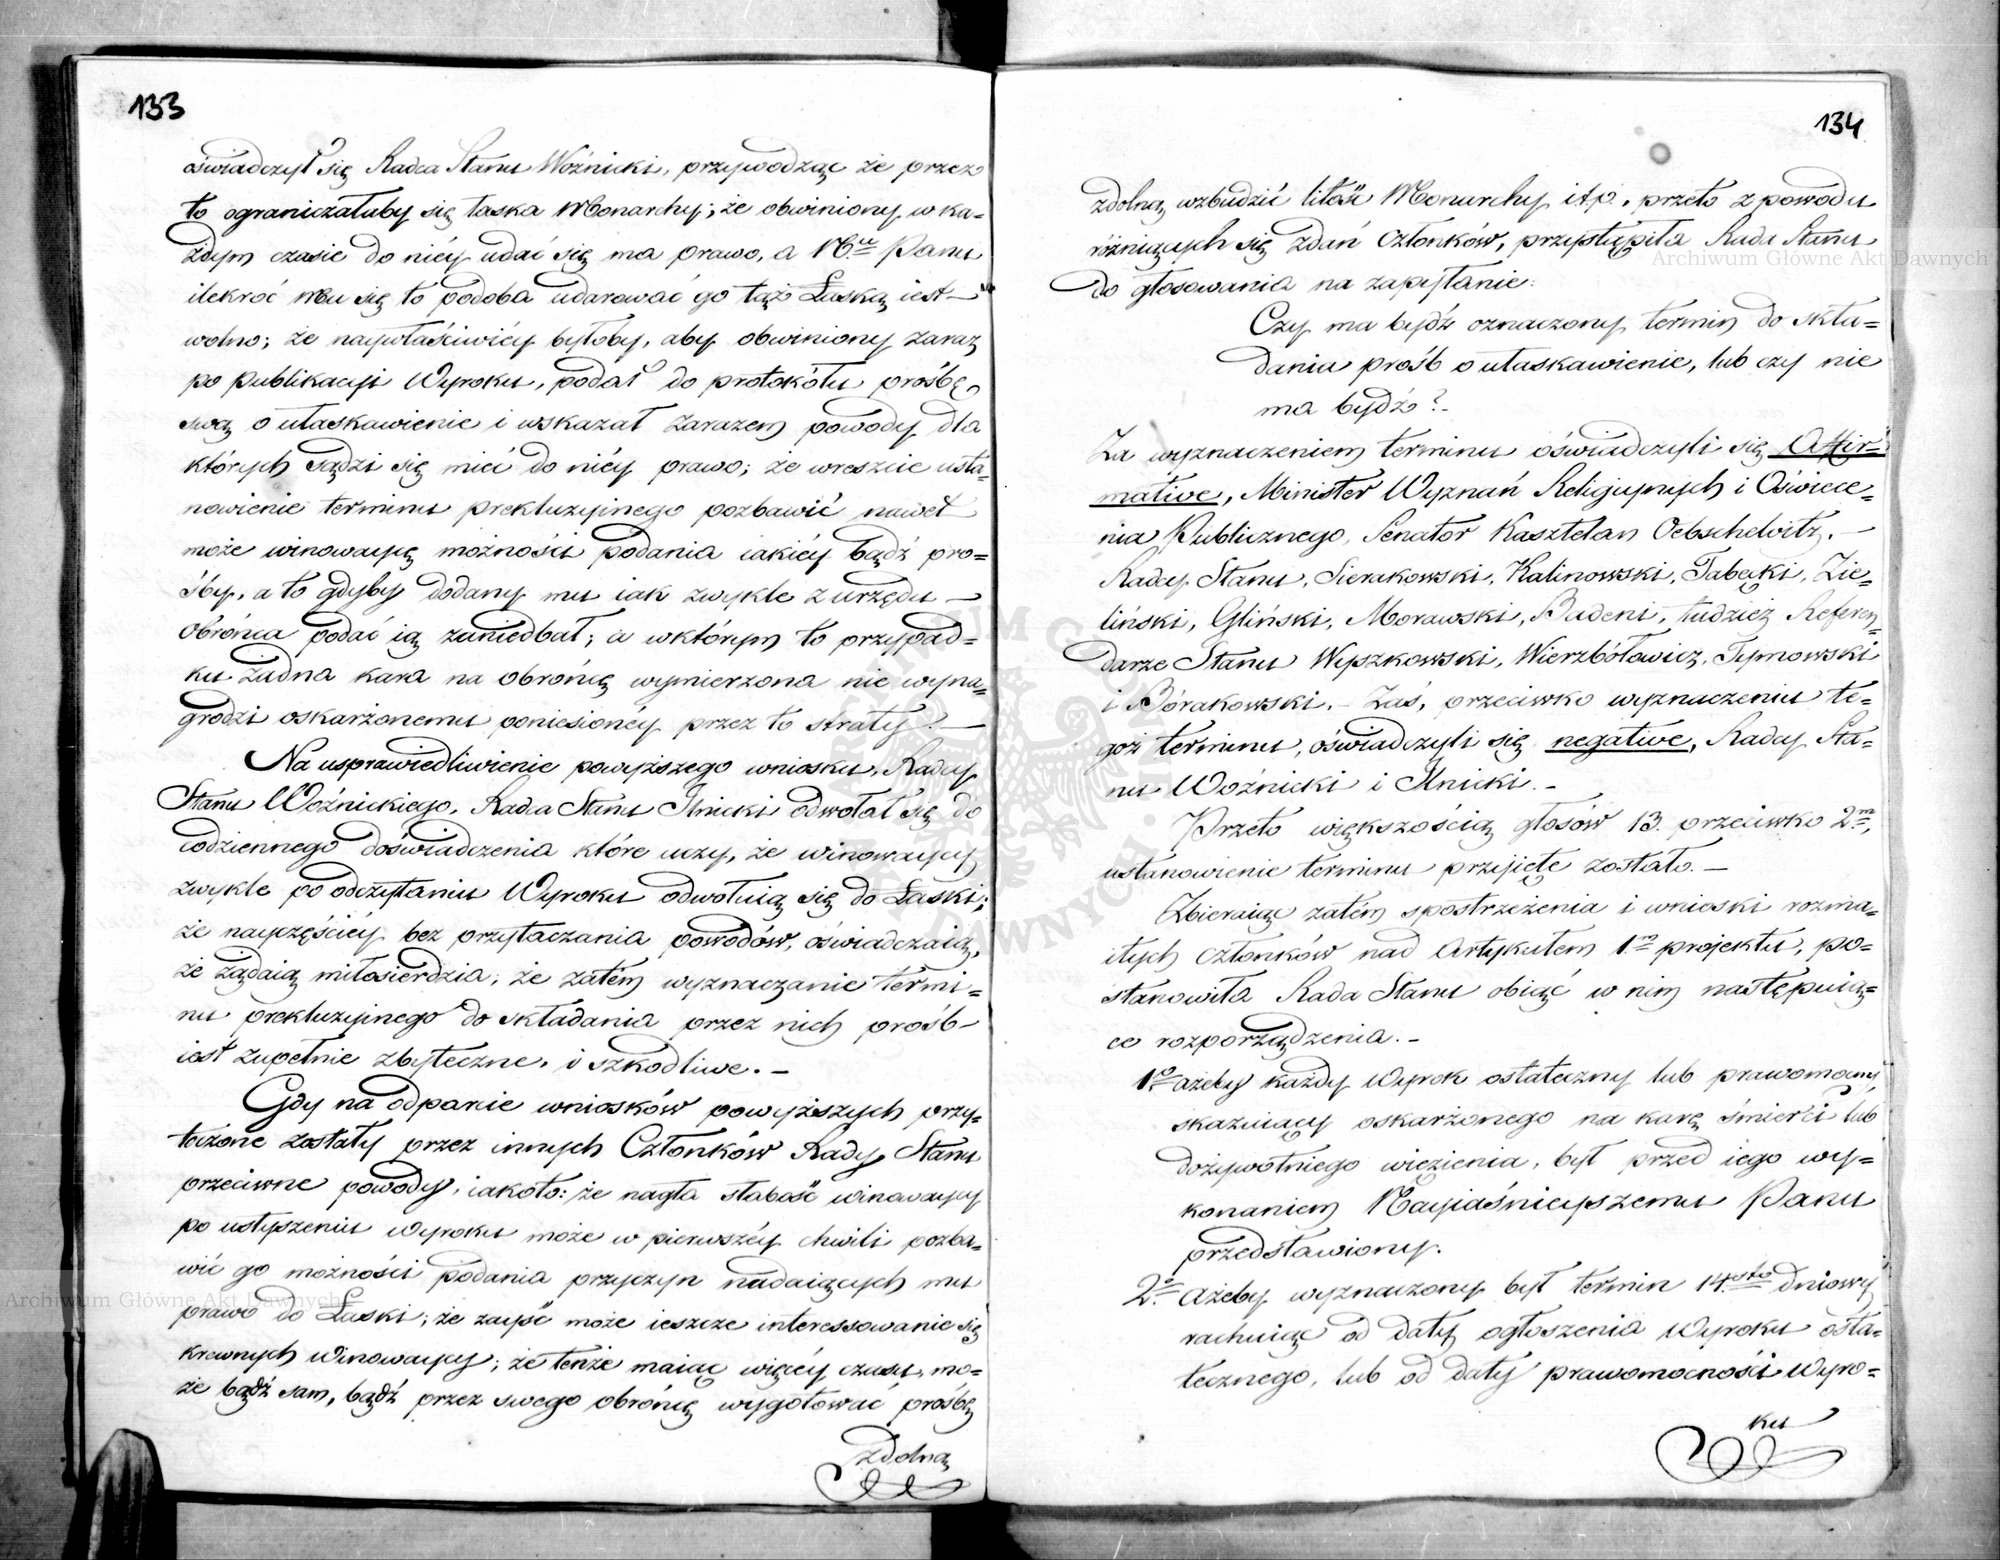 133
oświadczył się Radca Stanu Woźnicki, przywodząc że przez
to ograniczałaby się łaska Monarchy; że obwiniony w ka=
żdym czasie do niéy udać się ma prawo, a N.u Panu
ilekroć Mu się to podoba udarować go tąż Łaską iest
wolno; że naywłaściwiéy byłoby, aby obwiniony zaraz
po publikacyi Wyroku, podał do protokółu prośbę
swą o ułaskawienie i wskazał zarazem powody dla
których sądzi się mieć do niéy prawo; że wreszcie usta=
nowienie terminu prekluzyinego pozbawić nawet
może winowaycę możności podania iakiéy bądź pro=
śby, a to gdyby dodany mu iak zwykle z urzędu
obrońca podać ią zaniedbał; a w którym to przypad=
ku żadna kara na obrońcę wymierzona nie wyna=
grodzi oskarżonemu poniesionéy przez to straty!
Na usprawiedliwienie powyższego wniosku, Radcy
Stanu Woźnickiego, Radca Stanu Ilnicki odwołał się do
codziennego doświadczenia które uczy, że winowaycy
zwykle po odczytaniu Wyroku odwołuią się do Łaski;
że nayczęściéy bez przytaczania powodów, oświadczaią,
że żądaią miłosierdzia; że zatém wyznaczanie termi=
nu prekluzyinego do składania przez nich prośb
iest zupełnie zbyteczne, i szkodliwe. –
Gdy na odparcie wniosków powyższych przy=
toczone zostały przez innych Członków Rady Stanu
przeciwne powody, iakoto: że nagła słabość winowaycy
po usłyszeniu Wyroku może w pierwszéy chwili pozba=
wić go możności podania przyczyn nadaiących mu
prawo do Łaski; że zayść może ieszcze interessowanie się
krewnych Winowaycy; że tenże maiąc więcéy czasu, mo=
że bądź sam, bądź przez swego obrońcę wygotować prośbę
zdolną
134
zdolną wzbudzić litość Monarchy itp., przeto z powodu
różniących się zdań Członków, przystąpiła Rada Stanu
do głosowania na zapytanie:
Czy ma bydź oznaczony termin do skła=
dania prośb o ułaskawienie, lub czy nie
ma bydź? –
Za wyznaczeniem terminu oświadczyli się Affir=
mative, Minister Wyznań Religijnych i Oświece=
nia Publicznego, Senator Kasztelan Oebschelwitz,
Radcy Stanu, Sierakowski, Kalinowski, Tabęcki, Zie=
liński, Gliński, Morawski, Badeni, tudzież Referen=
darze Stanu Wyszkowski, Wierzbółowicz, Tymowski
i Bórakowski. – Zaś, przeciwko wyznaczeniu te=
goż terminu, oświadczyli się negative, Radcy Sta=
nu Woźnicki i Ilnicki. –
Przeto większością głosów 13. przeciwko 2m,
ustanowienie terminu przyięte zostało. –
Zbieraiąc zatém spostrzeżenia i wnioski rozma=
itych Członków nad Artykułem 1m projektu, po=
stanowiła Rada Stanu obiąć w nim następuią=
ce rozporządzenia. –
1o ażeby każdy Wyrok ostateczny lub prawomocny,
skazuiący oskarżonego na karę śmierci lub
dożywotniego więzienia, był przed iego wy=
konaniem Nayiaśnieyszemu Panu
przedstawiony.
2o Ażeby wyznaczony był termin 14sto dniowy
rachuiąc od daty ogłoszenia Wyroku osta=
tecznego, lub od daty prawomocności Wyro=
ku
Archiwum Główne Akt Dawnych
Archiwum Główne Akt Dawnych